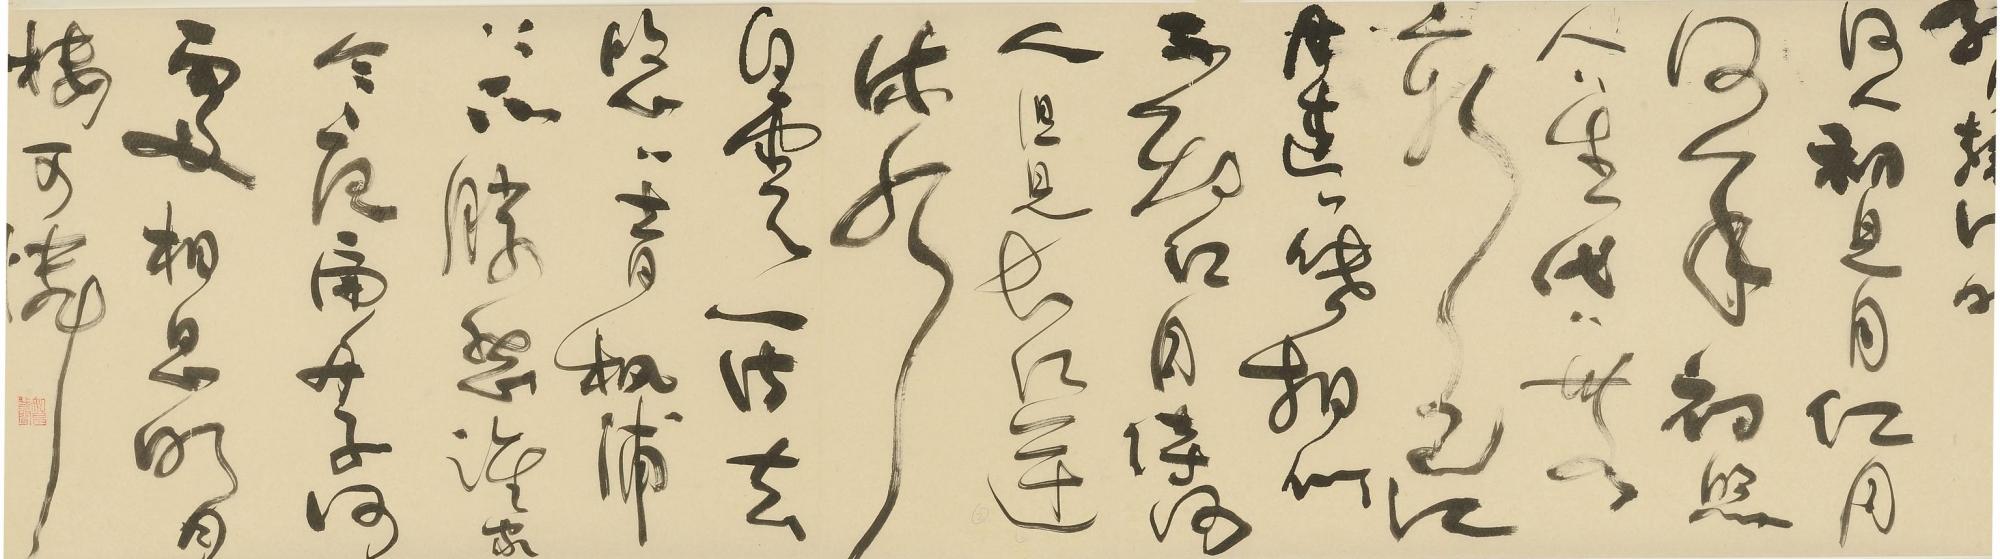 孤月輪江畔
何人初見月江月
何年初照
人人生代代無
窮已江
月年年望相似
不知江月待何
人但見長江送
流水
白雲一片去
悠悠青楓浦
上不勝愁誰家
今夜扁舟子何
處相思明月
樓可憐